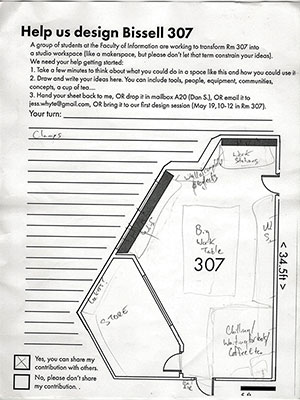 Help us design Bissell 307
A group of students at the Faculty of Information are working to transform Rm 307 into
a studio workspace (like a makerspace, but please don't let that term constrain your ideas).
We need your help getting started:
1. Take a few minutes to think about what you could do in a space like this and how you could use it
2. Draw and write your ideas here. You can include tools, people, equipment, communities,
concepts, a cup of tea....
3. Hand your sheet back to me, OR drop it in mailbox A20 (Don S.), OR email it to
jess.whyte@gmail.com, OR bring it to our first design session (May 19, 10-12 in Rm 307).
Your turn:
Clamps
Work
Stations
Big
Work
Table
307
< 34.5ft >
STORE
Chilling/
Waiting for bot/
Coffee &tea
Yes, you can share my
contribution with others.
No, please don't share
my contribution. .